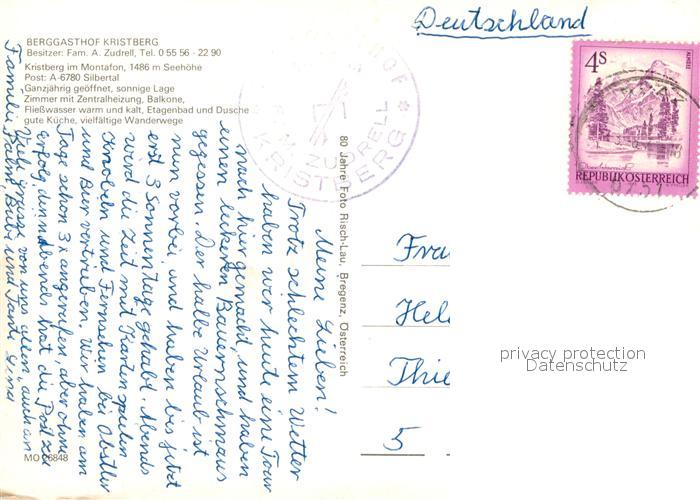 Deutschland
BERGGASTHOF KRISTBERG
Besitzer: Fam. A. Zudrell, Tel. 0 55 56 - 22 90
Kristberg im Montafon, 1486 m Seehöhe
Post: A-6780 Silbertal
Ganzjährig geöffnet, sonnige Lage
Zimmer mit Zentralheizung, Balkone,
Fließwasser warm und kalt, Etagenbad und Dusche
gute Küche, vielfältige Wanderwege
4S
ALMSEE
REPUBLIK ÖSTERREICH
ZUDRELL
KRISTBERG
80 Jahre Foto Risch-Lau, Bregenz, Österreich
Meine Lieben!
Trotz schlechtem Wetter
haben wir heute eine Tour
nach hier gemacht, und haben
einen leckeren Bauernschmaus
gegessen. Der halbe Urlaub ist
nun vorbei, und haben bis jetzt
erst 3 Sonnentage gehabt. Abends
wird die Zeit mit Karten spielen
Knobeln und Fernsehen bei Obstler
und Bier vertrieben. Wir haben am
Tage schon 3x angerufen aber ohne
Erfolg, denn Abends hat die Post zu
Viele Grüsse von uns allen, auch an
Familie Palm, Bube und Tante
Fra
Hel
Thie
5
privacy protection
Datenschutz
MO 26848